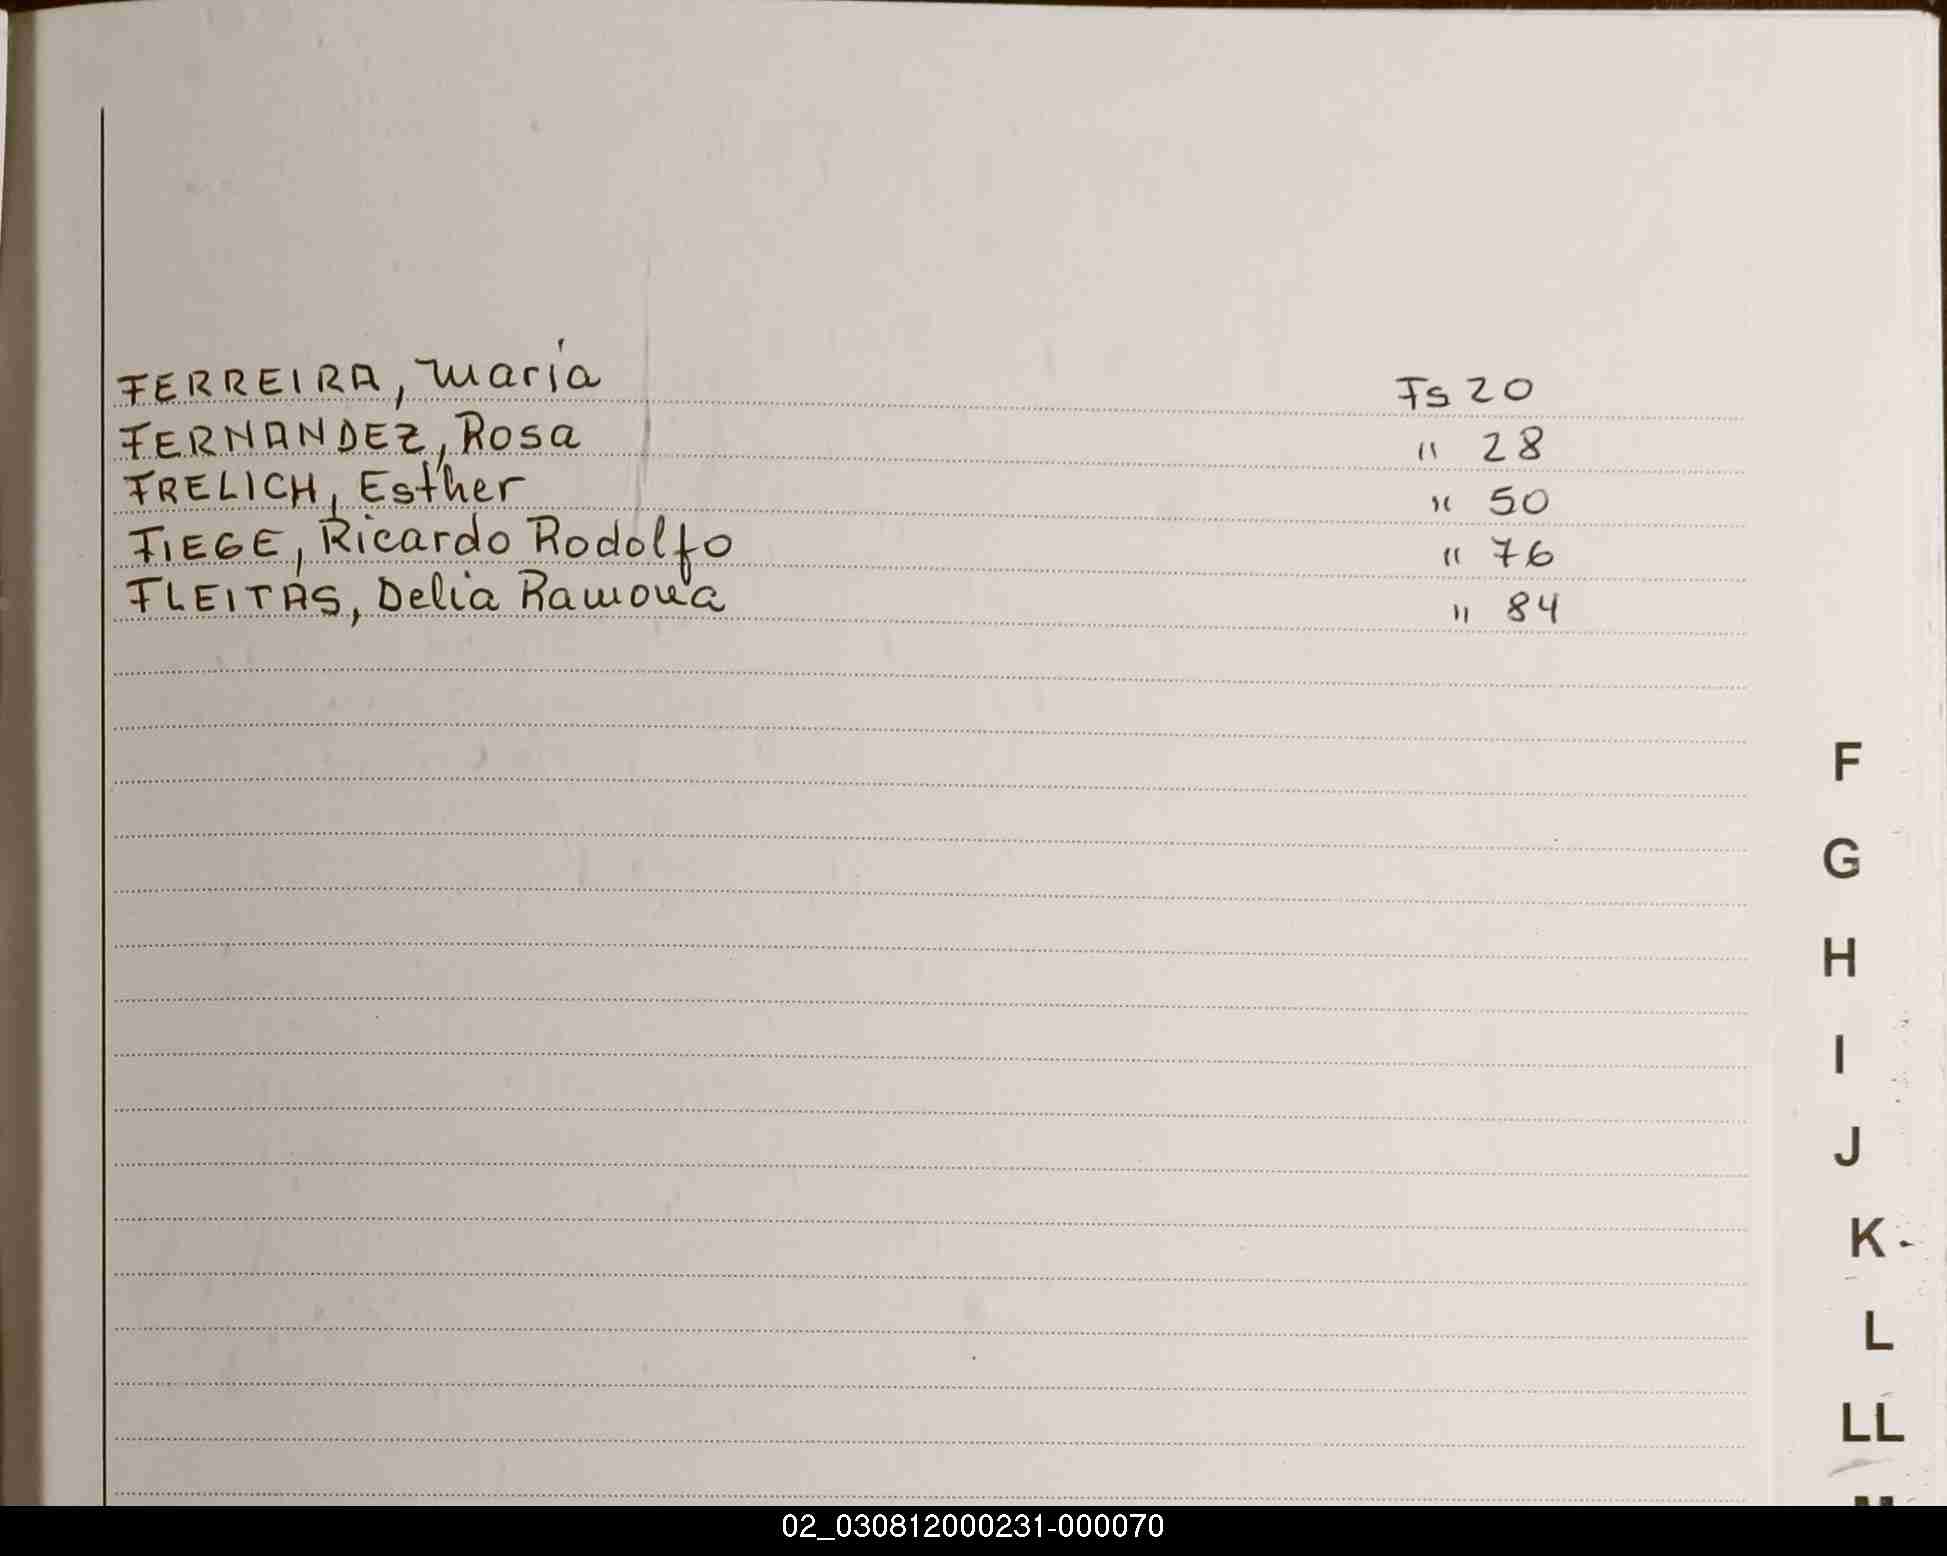 FERREIRA, María Fs 20
FERNANDEZ, Rosa " 28
FRELICH, Esther " 50
FIEGE, Ricardo Rodolfo " 76
FLEITAS, Delia Ramona " 84
F
G
H
I
J
K
L
LL
02_030812000231-000070